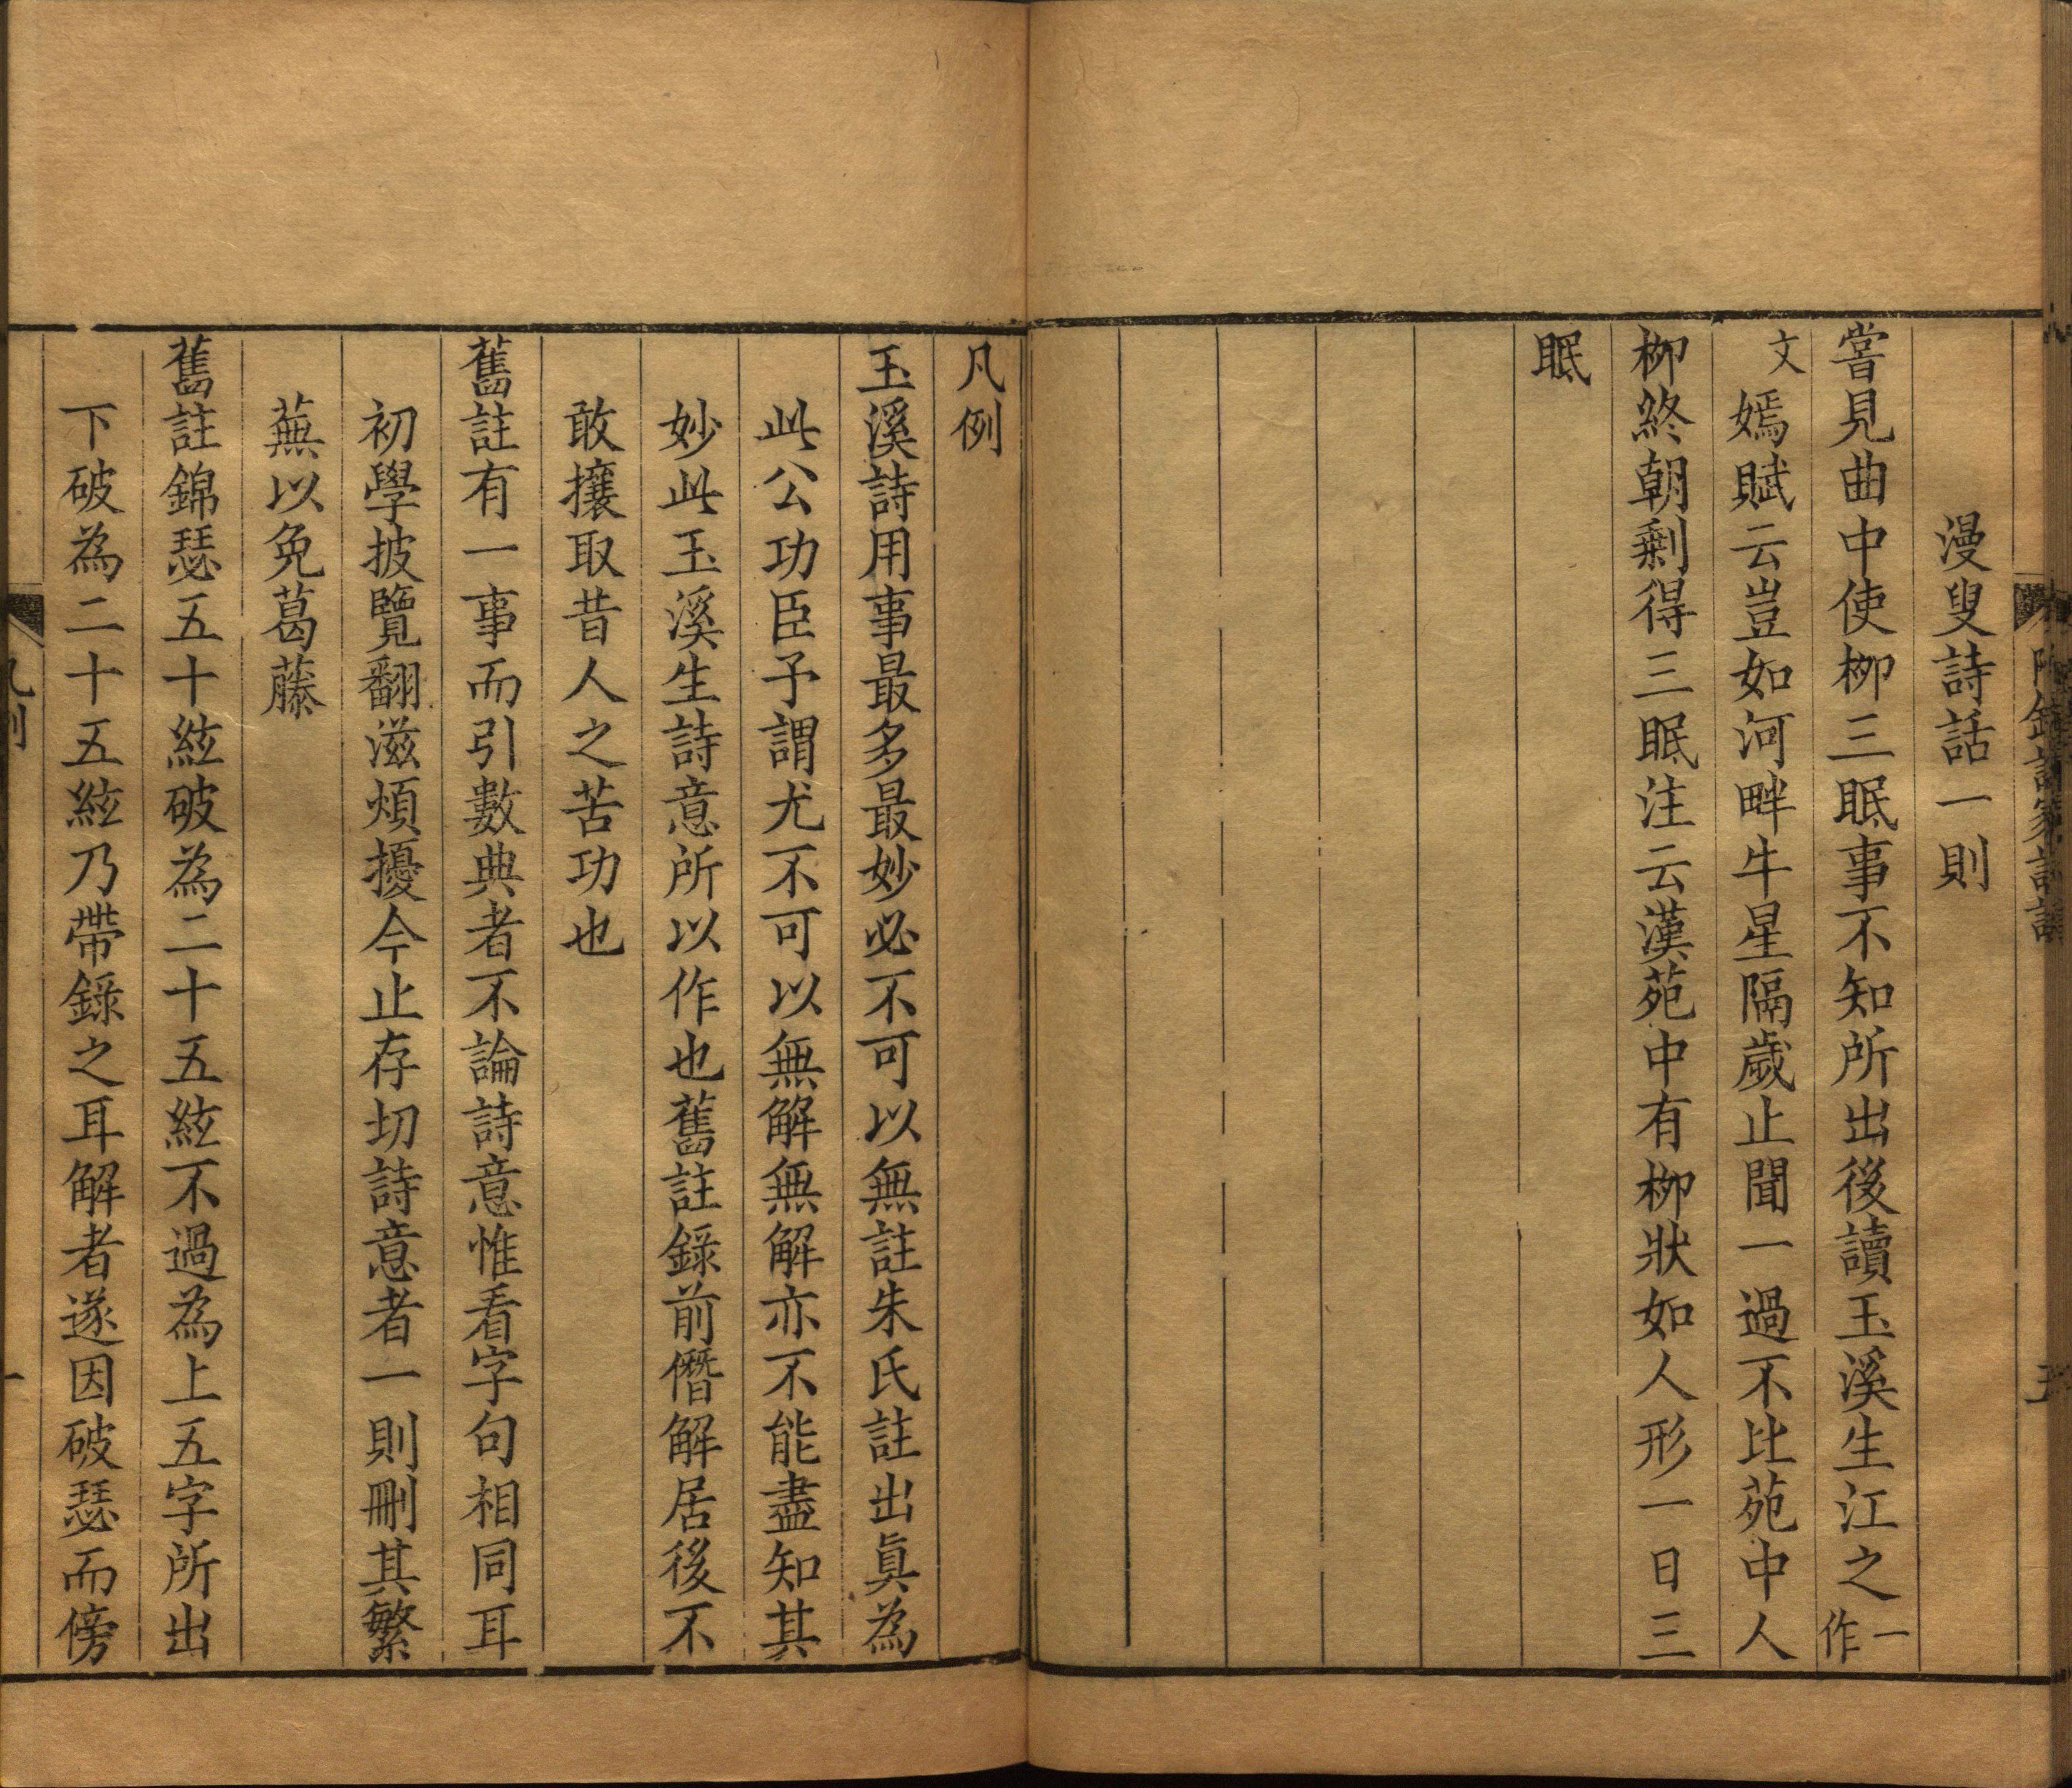 漫叟詩話一則
嘗見曲中使栁三眠事不知所出後讀玉溪生江之一作
文嫣賦云豈如河畔牛星隔歲止聞一過不比苑中人
栁終朝剩得三眠注云漢苑中有栁狀如人形一日三
眠
凡例
玉溪詩用事最多最妙必不可以無註朱氏註出眞為
此公功臣予謂尤不可以無解無解亦不能盡知其
妙此玉溪生詩意所以作也舊註錄前僭解居後不
敢攘取昔人之苦功也
舊註有一事而引數典者不論詩意惟看字句相同耳
初學披覽翻滋煩擾今止存切詩意者一則刪其繁
蕪以免葛藤
舊註錦瑟五十絃破為二十五絃不過為上五字所出
下破為二十五絃乃帶錄之耳解者遂因破瑟而傍